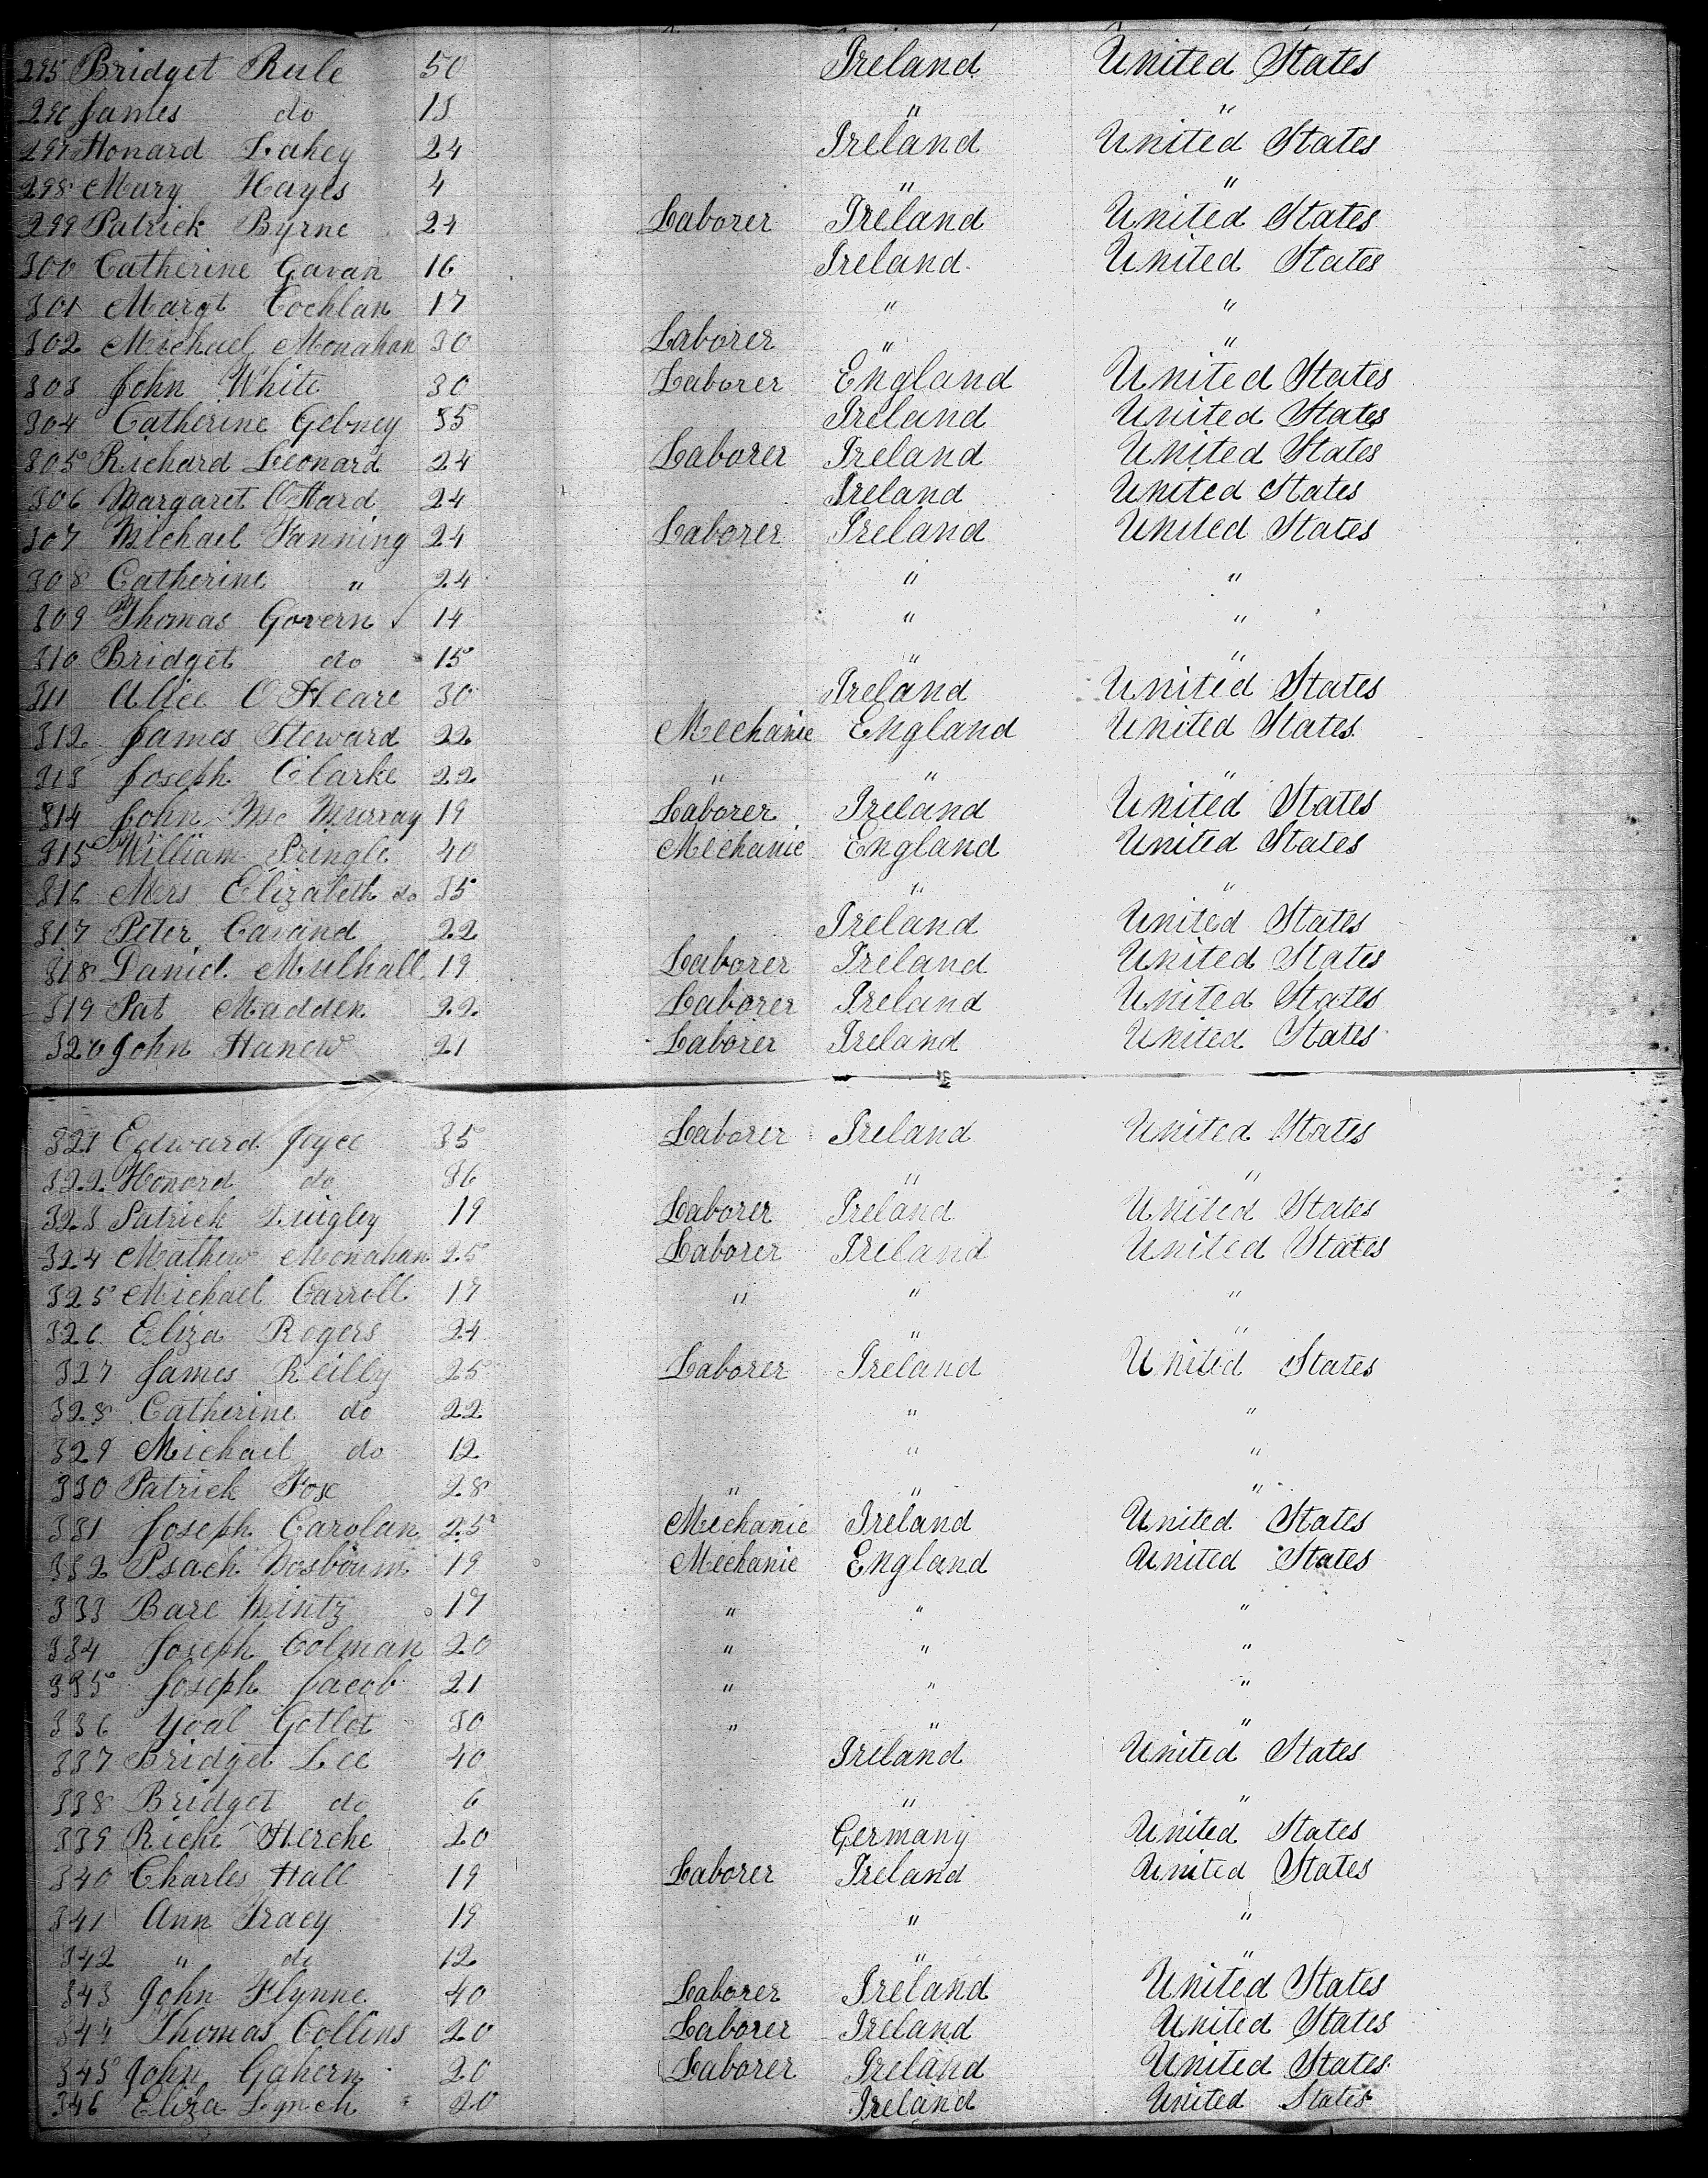 295 Bridget Rule 50 Ireland United States
296 James do 15 " "
297 Honard Lahey 24 Ireland United States
298 Mary Hayes 4 " "
299 Patrick Byrne 24 Laborer Ireland United States
300 Catherine Gavan 16 Ireland United States
301 Margt Cochlan 17 " "
302 Michael Monahan 30 Laborer " "
303 John White 30 Laborer England United States
304 Catherine Gebney 35 Ireland United States
305 Richard Leonard 24 Laborer Ireland United States
306 Margaret O'Hard 24 Ireland United States
307 Michael Fanning 24 Laborer Ireland United States
308 Catherine " 24 " "
309 Thomas Govern 14 " "
310 Bridget do 15 " "
311 Alice O'Heare 30 Ireland United States
312 James Steward 22 Mechanic England United States
313 Joseph Clarke 22 " " "
314 John McMurray 19 Laborer Ireland United States
315 William Pringle 40 Mechanic England United States
316 Mers Elizabeth do 35 " "
317 Peter Cavand 22 Ireland United States
318 Daniel Mulhall 19 Laborer Ireland United States
319 Pat Madden 22 Laborer Ireland United States
320 John Hanew 21 Laborer Ireland United States
321 Edward Joyce 35 Laborer Ireland United States
322 Honord do 36 " "
323 Patrick Quigley 19 Laborer Ireland United States
324 Mathew Monahan 25 Laborer Ireland United States
325 Michael Carroll 17 " " "
326 Eliza Rogers 24 " "
327 James Reilly 25 Laborer Ireland United States
328 Catherine do 22 " "
329 Michael do 12 " "
330 Patrick Fox 28 " " "
331 Joseph Carolan 25 Mechanic Ireland United States
332 Psach Nosboum 19 Mechanic England United States
333 Bare Mintz 17 " " "
334 Joseph Colman 20 " " "
335 Joseph Jacob 21 " " "
336 Yoal Gotlot 30 " " "
337 Bridget Lee 40 Ireland United States
338 Bridget do 6 " "
339 Rieke Herche 20 Germany United States
340 Charles Hall 19 Laborer Ireland United States
341 Ann Tracy 19 " "
342 " do 12 " "
343 John Flynne 40 Laborer Ireland United States
344 Thomas Collins 20 Laborer Ireland United States
345 John Gahern 20 Laborer Ireland United States
346 Eliza Lynch 20 Ireland United States